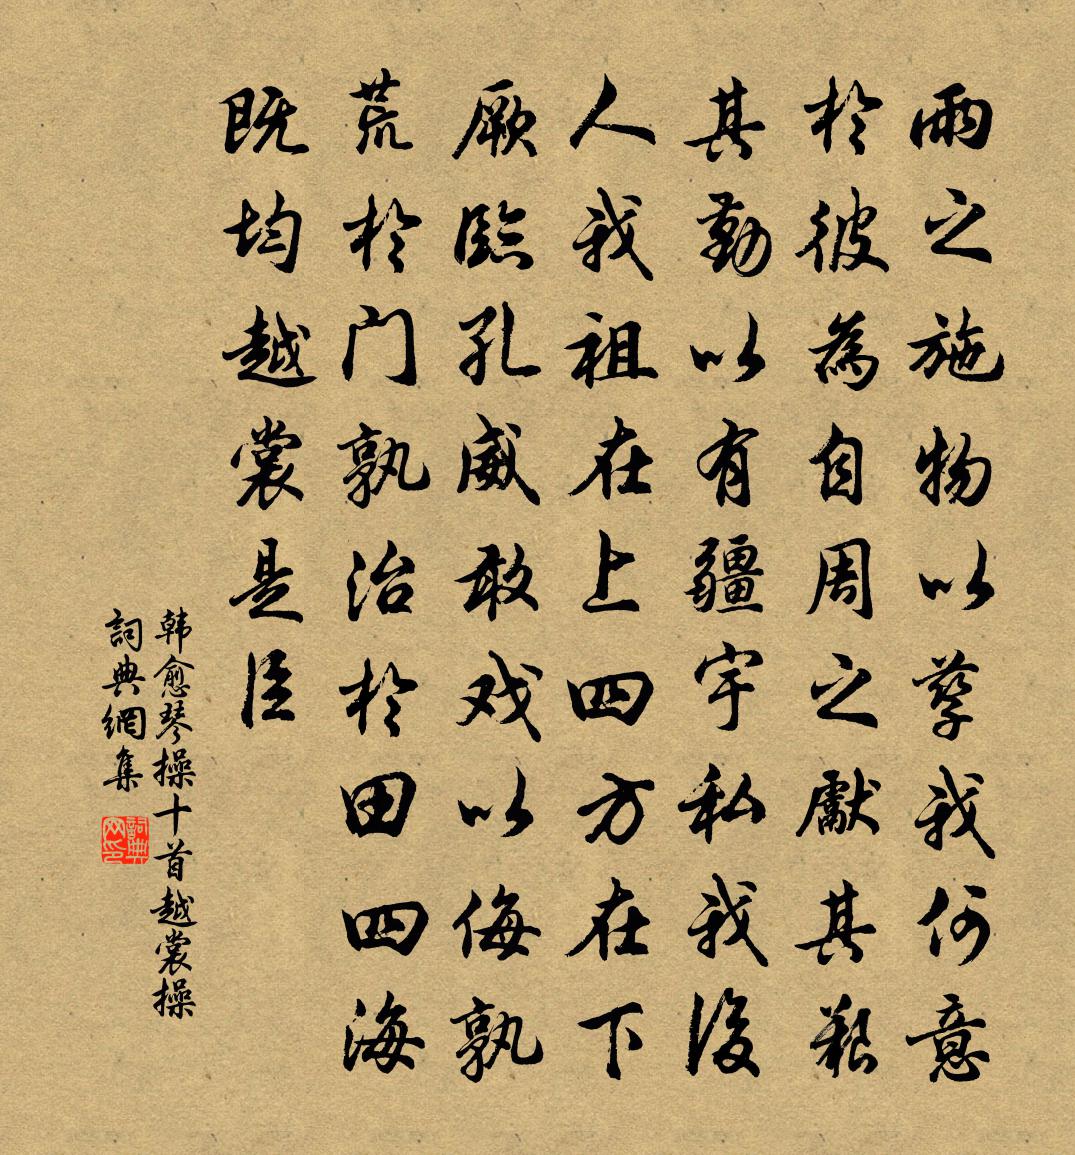 雨之施物以孳我何意
於彼為自周之獻其艱
其勤以有疆宇私我後
人我祖在上四方在下
厥臨孔威敢戏以侮孰
荒於门孰治於田四海
既均越裳是臣
韩愈琴操十首越裳操
詞典網集
詞典网印